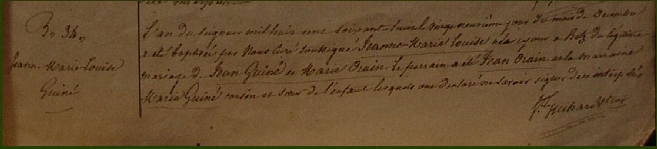 B. 34.
Jeanne-Marie-Louise
Guiné
L'an du Seigneur mil huit cent soixante-
jour du mois de Décembre
a été baptisée par Nous Curé soussigné Jeanne-Marie Louise née à Batz du légitime
mariage de Jean Guiné et Marie Orain. Le parrain a été Jean Orain et la marraine
Marie Guiné cousin et sœur de l'enfant lesquels ont déclaré ne savoir signer de ce interpellés